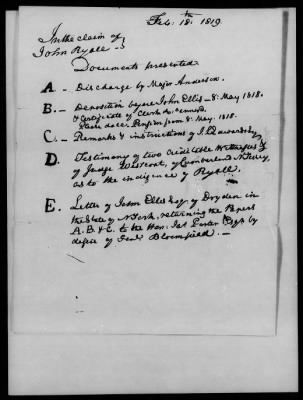 Feb. 18th 1819.
In the claim of
John Ryall
Documents presented
A - Discharge by Major Anderson.
B. - Deposition by me John Ellis - 8. May 1818.
& Certificate of Clerk &
8. May. 1818.
C. - Remarks & instructions of
D. Testimony of two Credible Witnesses &
of Judge Westcott, of Cumberland N Jersey,
as to the indigence of Ryall.
E. Letter of John Ellis Esqr. of Dryden in
the State of N York, returning the Papers
A. B. & C. to the Hon.
desire of Genl. Bloomfield. -